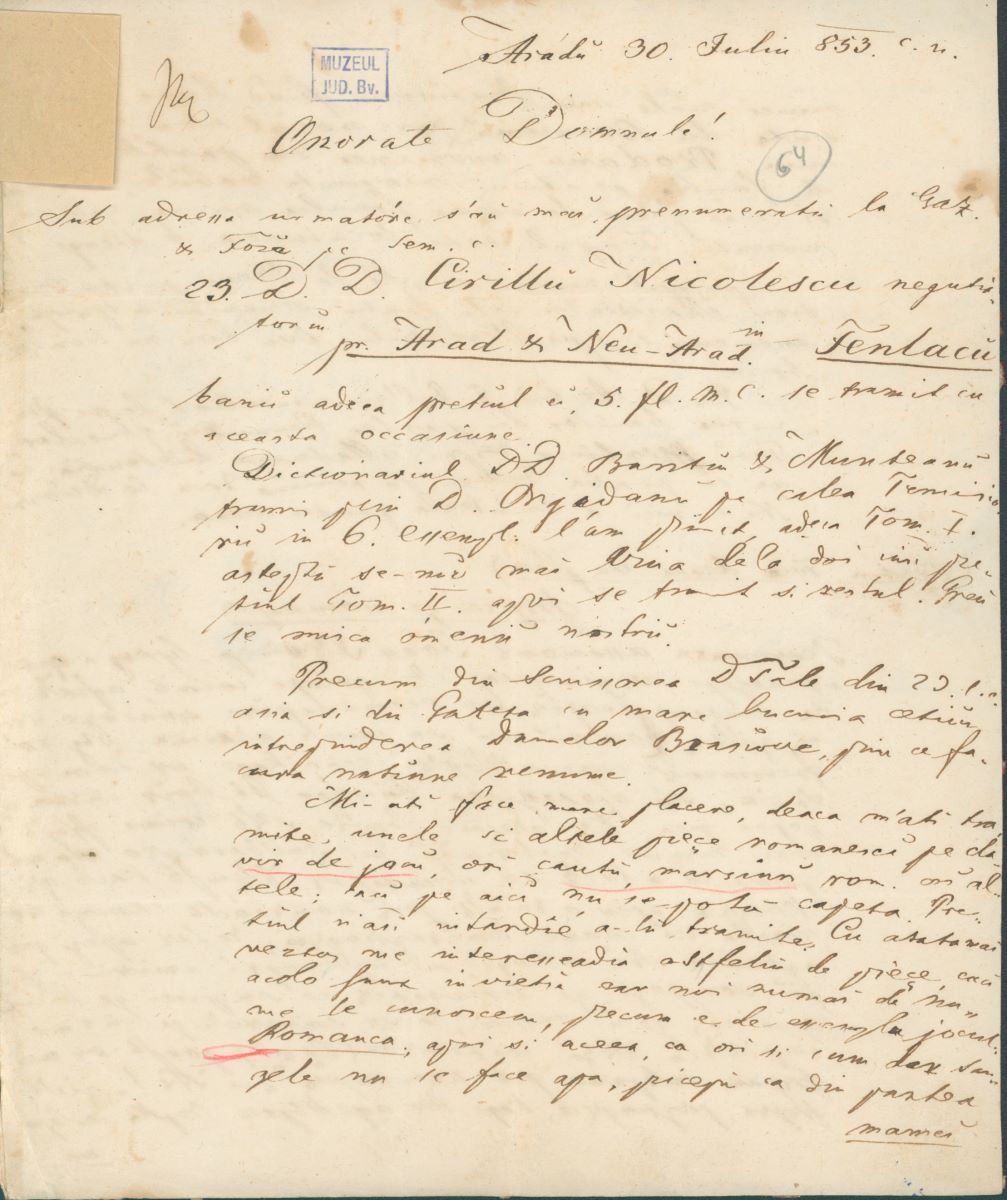 Arádŭ 30. Juliu 853. c. n.
MUZEUL
JUD. Bv.
Onorate Domnule!
64
Sub adressa urmatóre s'au mai prenumeratu la Gaz.
& Fóia pe Sem. c.
23. D. D. Cirillŭ Nicolescu negutia-
toriu
pr. Arad & Neu-Arad. in Fenlacŭ
banii adeca pretiul ŭ 5. fl. m. c. se tramit cu
aceasta occasiune.
Dictionariul DD. Baritiu & Munteanŭ
tramis prin D. Orgidanŭ pe calea Temisió-
rii in 6. exempl. l'am primit, adeca Tom. I.
asteptŭ se-mi mai vina dela doi insi pre-
tiul Tom. II. apoi se tramit si restul. Greu
se misca ómenii nostrii.
Precum din scrissorea DTale din 23. l. c.
asia si din Gazeta cu mare bucuria cetiiu
intreprinderea Damelor Brasiove, prin ce fa-
cura natiune renume.
Mi-ati face mare placere, deaca m'ati tra-
mite, unele si altele piece romanesci pe cla-
vir de jocŭ, ori cantŭ, marsiurĭ rom. ori al-
tele; cacĭ pe aicĭ nu se potŭ capeta. Pre-
tiul n'asi intardié a-lu tramite. Cu atata mai
vertos me interesseadia astfeliu de piece, caci
acolo sunt in vietia ear noi numai de nu-
me le cunoscem, precum e. de exemplu jocul:
Romanca, apoi si aceea, ca ori si cum dar san-
gele nu se face apa, pricepi ca din partea
mamei